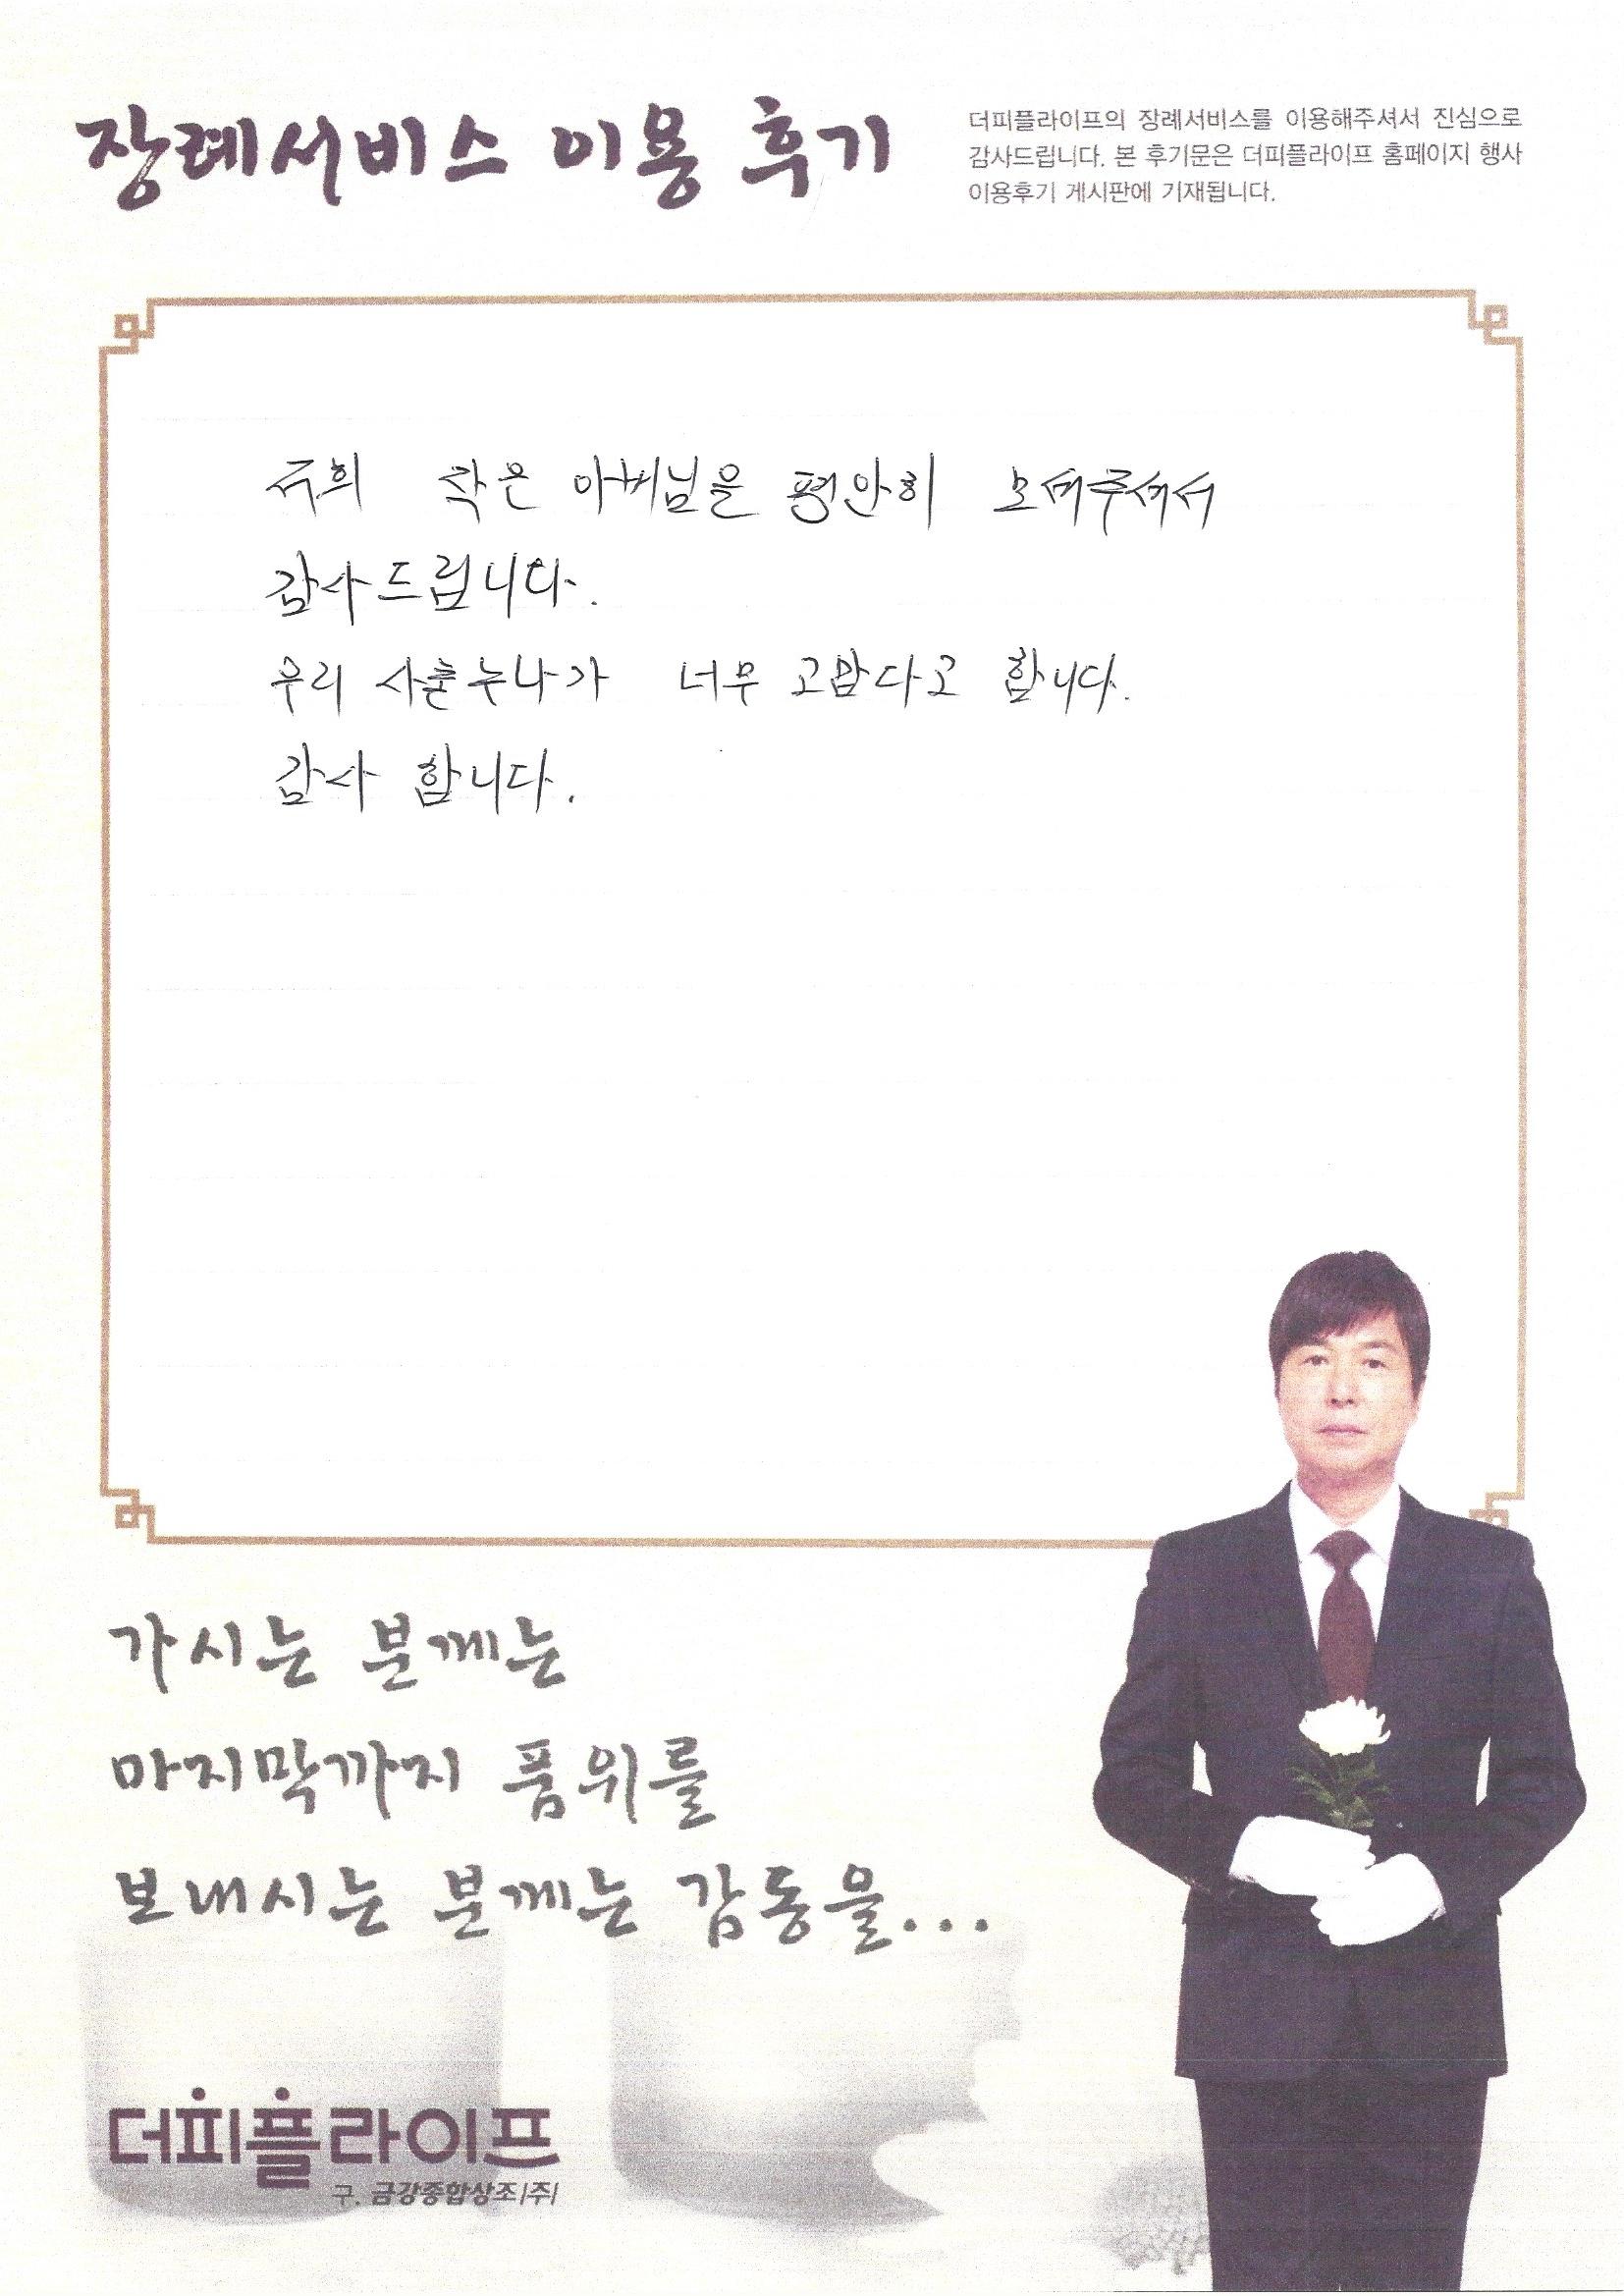 장례서비스 이용 후기
더피플라이프의 장례서비스를 이용해주셔서 진심으로
감사드립니다. 본 후기문은 더피플라이프 홈페이지 행사
이용후기 게시판에 기재됩니다.
저희 작은 아버님을 평안히 모셔주셔서
감사드립니다.
우리 사촌누나가 너무 고맙다고 합니다.
감사 합니다.
가시는 분께는
마지막까지 품위를
보내시는 분께는 감동을...
더피플라이프
구. 금강종합상조(주)